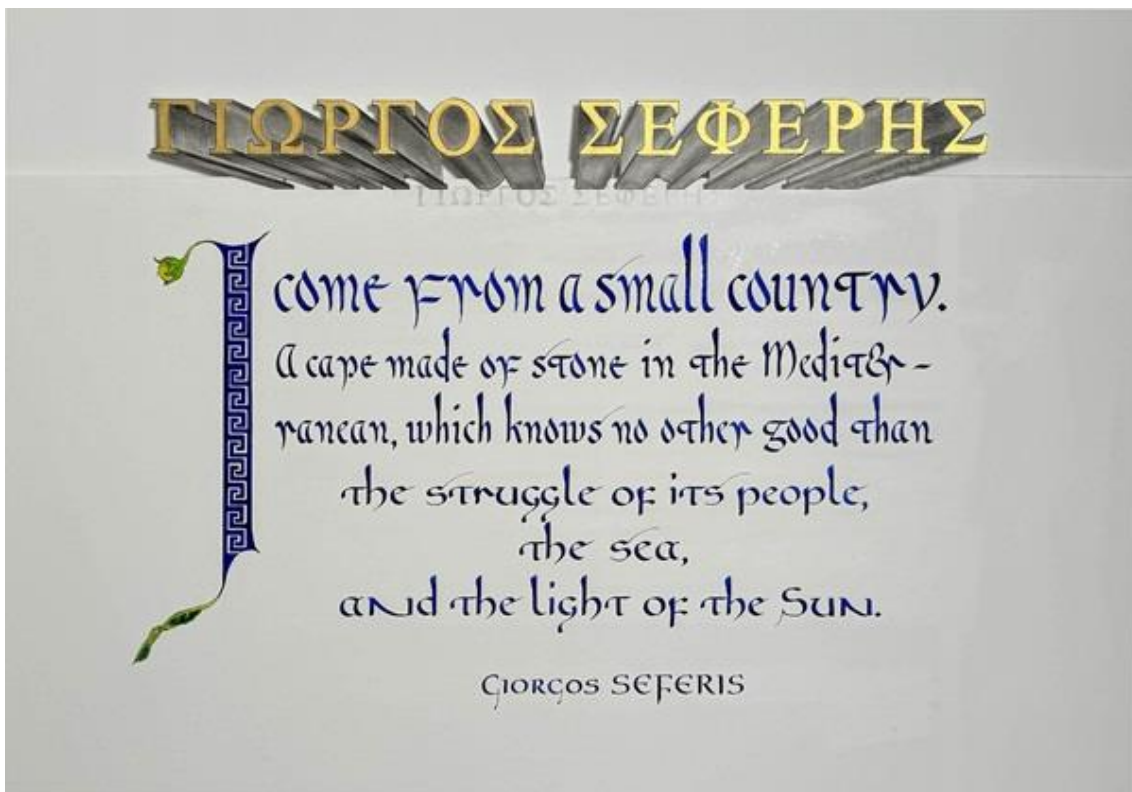 ΓΙΩΡΓΟΣ ΣΕΦΕΡΗΣ
ΓΙΩΡΓΟΣ ΣΕΦΕΡΗΣ
I come from a small country.
A cape made of stone in the Mediter-
ranean, which knows no other good than
the struggle of its people,
the sea,
and the light of the Sun.
Giorgos SEFERIS